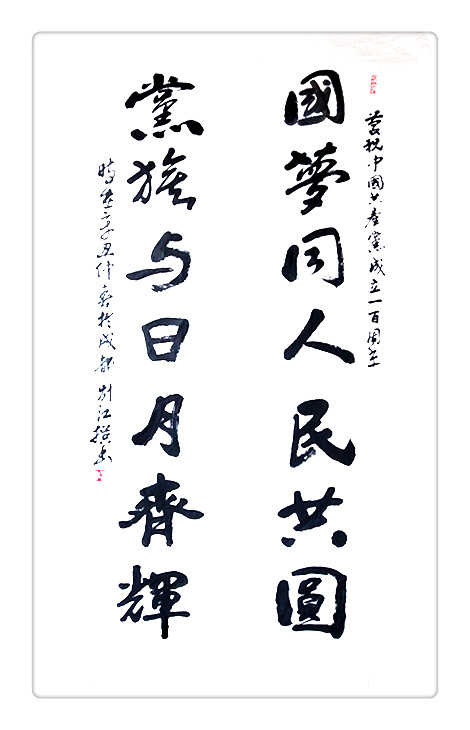 慶祝中國共產黨成立一百周年
國夢同人民共圓
黨旗与日月齊輝
時在辛丑仲春於成都 江撰书